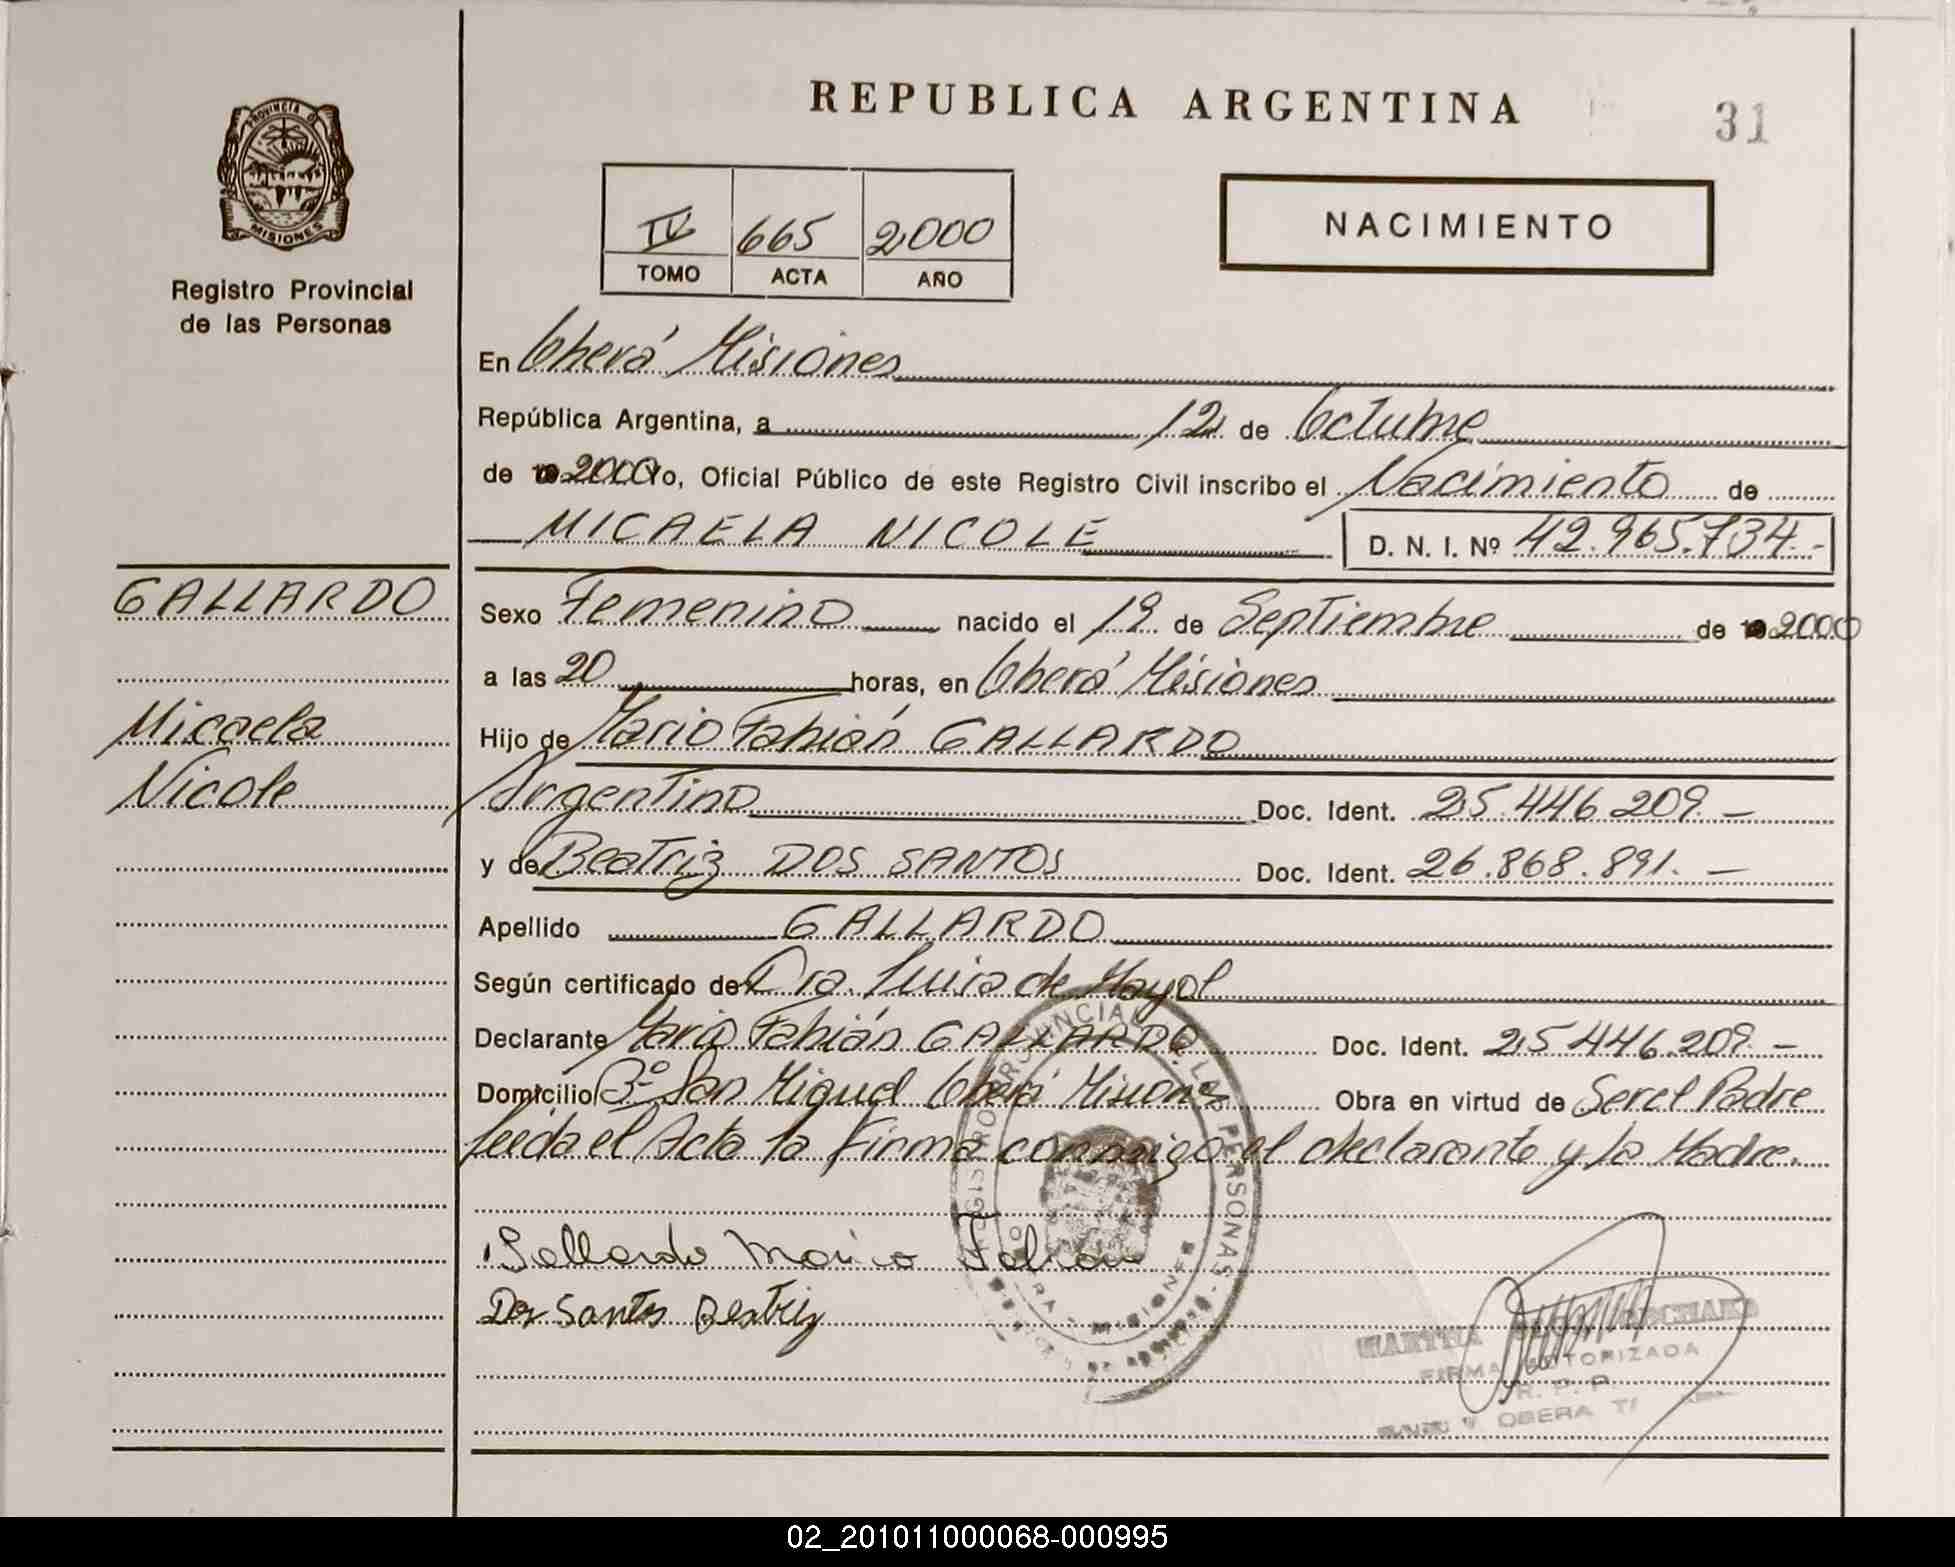 REPUBLICA ARGENTINA
31
PROVINCIA D
MISIONES
Registro Provincial
de las Personas
IV 665 2000
TOMO ACTA AÑO
NACIMIENTO
En Oberá Misiones
República Argentina, a 12 de Octubre
de 2000 Yo, Oficial Público de este Registro Civil inscribo el Nacimiento de
MICAELA NICOLE D. N. I. Nº 42.965.734.-
GALLARDO
Micaela
Nicole
Sexo Femenino nacido el 19 de Septiembre de 2000
a las 20 horas, en Oberá Misiones
Hijo de Mario Fabián GALLARDO
Argentino Doc. Ident. 25.446 209. -
y de Beatriz DOS SANTOS Doc. Ident. 26.868.891. -
Apellido GALLARDO
Según certificado de Dra. Luisa de Mayol
Declarante Mario Fabián GALLARDO Doc. Ident. 25 446.209. -
Domicilio Bº San Miguel Oberá Misiones Obra en virtud de Ser el Padre
leida el Acta la Firma conmigo el declarante y la Madre.
Gallardo Mario Fabian
Dos Santos Beatriz
MARTHA
FIRMA AUTORIZADA
R. P. P.
OBERA
02_201011000068-000995